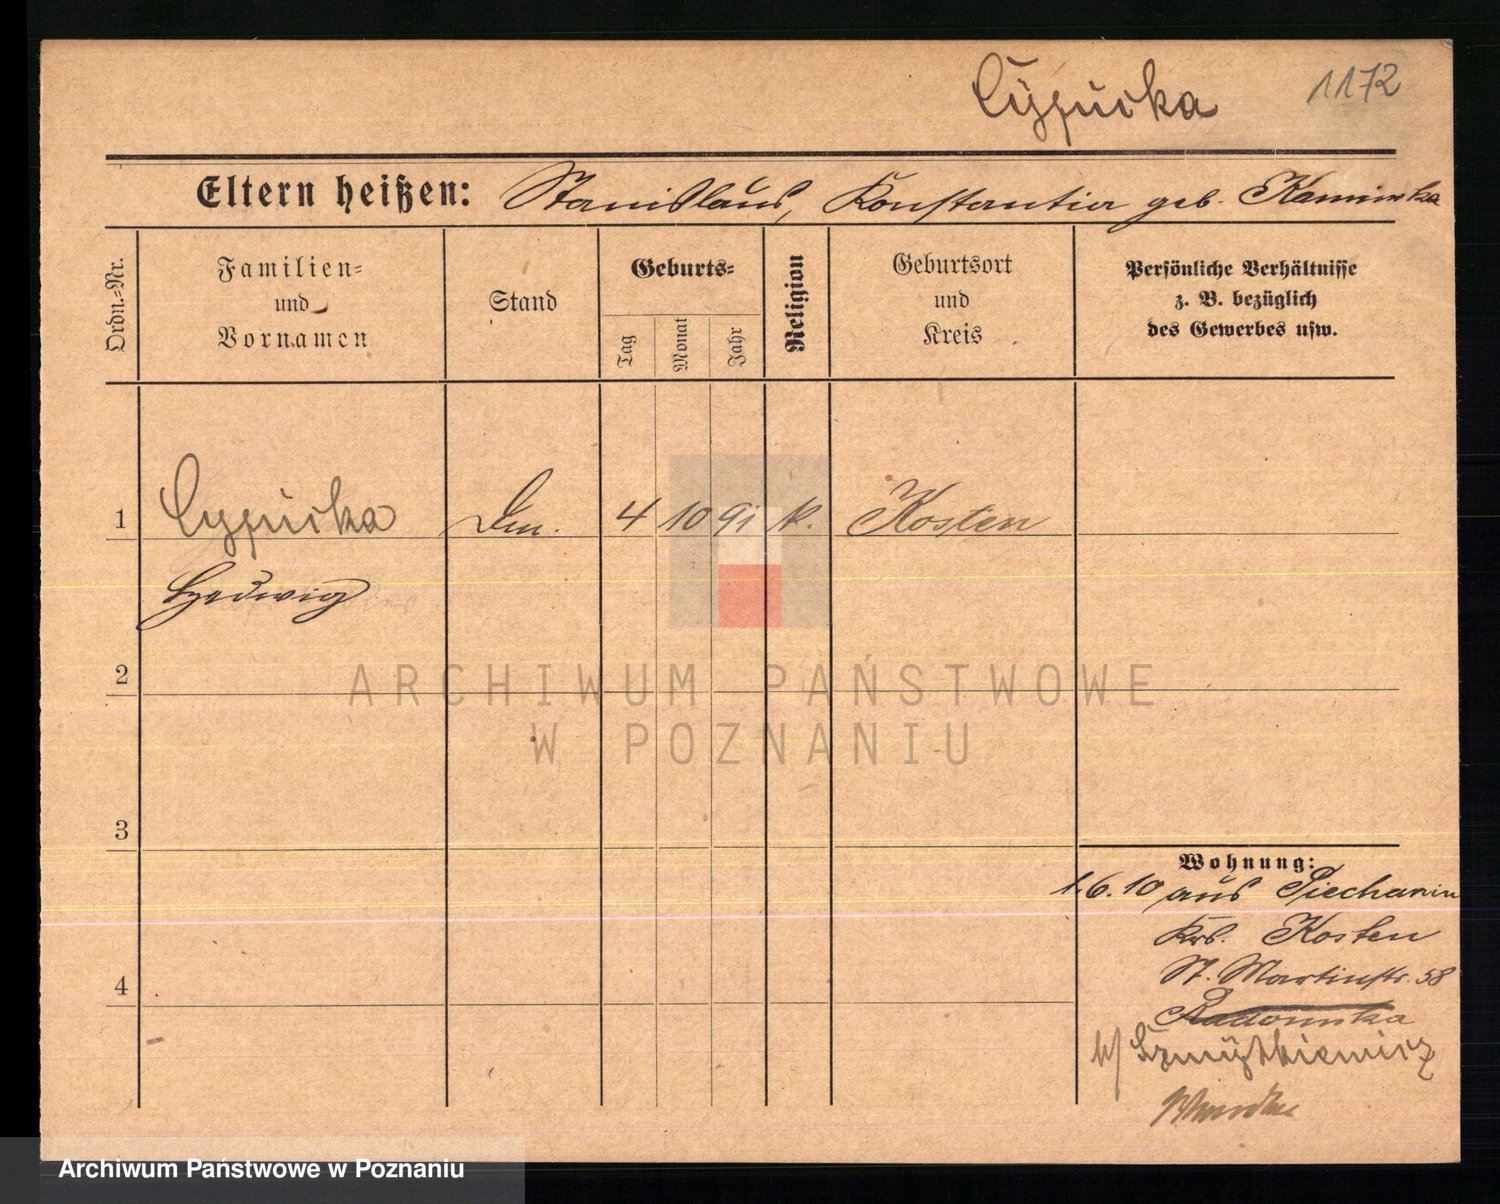 1172
Eltern heißen: Stanislaus, Konstantia geb. Kaminska
Ordn.=Nr.
Familien=
und
Vornamen
Stand
Geburts=
Tag
Monat
Jahr
Religion
Geburtsort
und
Kreis
Persönliche Verhältnisse
z. B. bezüglich
des Gewerbes usw.
1 4 10 91 k. Kosten
Hedwig
2
3
4
Wohnung:
1.6.10 aus Piechanin
Krs. Kosten
St. Martinstr. 58
Radomska
ARCHIWUM PAŃSTWOWE
W POZNANIU
Archiwum Państwowe w Poznaniu